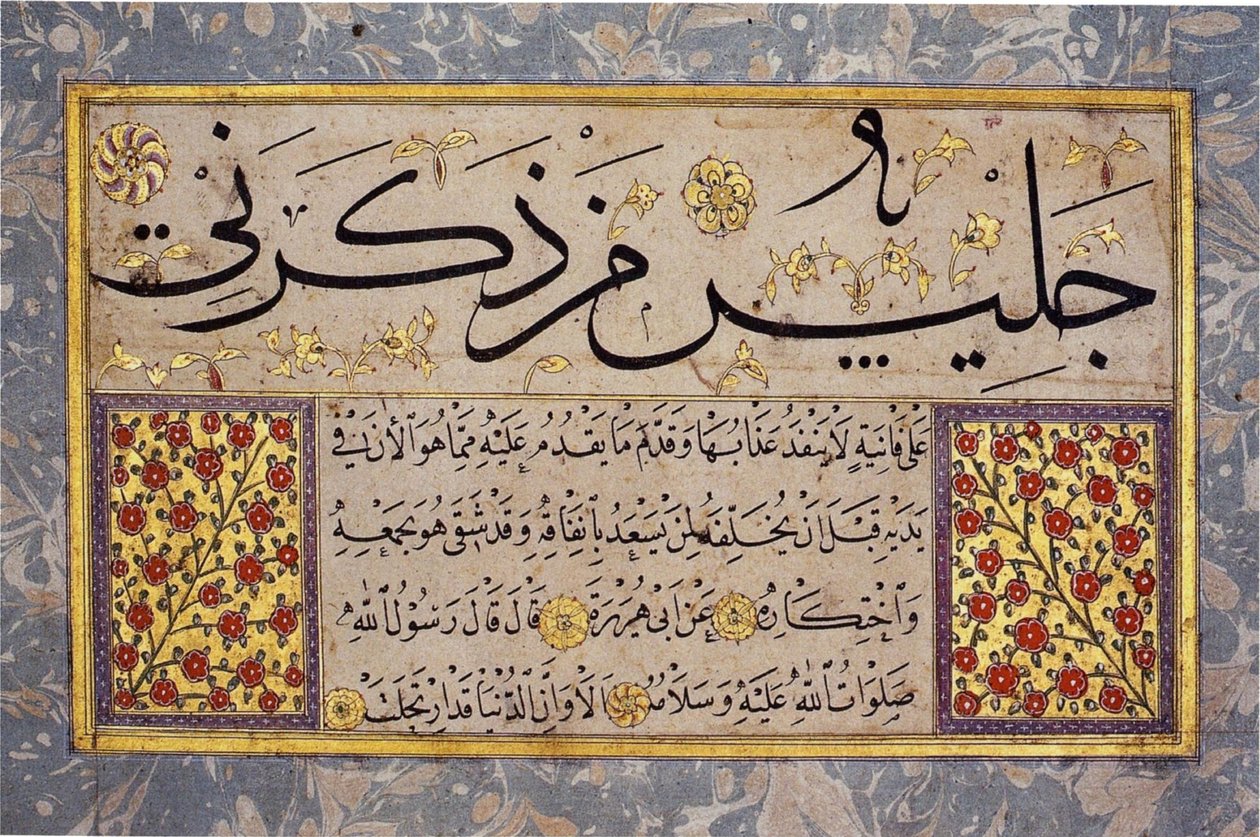 جَلِيسُ مَنْ ذَكَرَنِي
عَلَى فَانِيَةٍ لَا يَنْفَدُ عَذَابُهَا وَقَدَّمَ مَا يَقْدُمُ عَلَيْهِ مِمَّا هُوَ الْأٰنَ فِي
يَدَيْهِ قَبْلَ اَنْ يُخَلِّفَهُ لِمَنْ يَسْعَدُ بِاِنْفَاقِهِ وَقَدْ شَقِيَ هُوَ بِجَمْعِهِ
وَاحْتِكَارِهِ عَنْ اَبِى هُرَيْرَةَ قَالَ قَالَ رَسُولُ اللّٰهِ
صَلَوَاتُ اللّٰهِ عَلَيْهِ وَسَلَامُهُ اَلَا وَاِنَّ الدُّنْيَا قَدِ ارْتَحَلَتْ